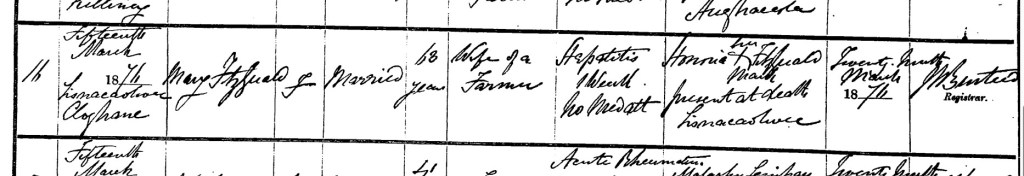 Killiney
Aughacasla
16
Fifteenth
March
1871
Lisnacaolwee
Cloghane
Mary Fitzgerald
F
Married
63
years
Wife of a
Farmer
Hepatitis
1 Week
No Med att
Honoria Fitzgerald
her X mark
present at death
Lisnacaolwee
Twenty Ninth
March
1871
Registrar.
Fifteenth
March
41
Acute Rheumatism
Twenty Ninth